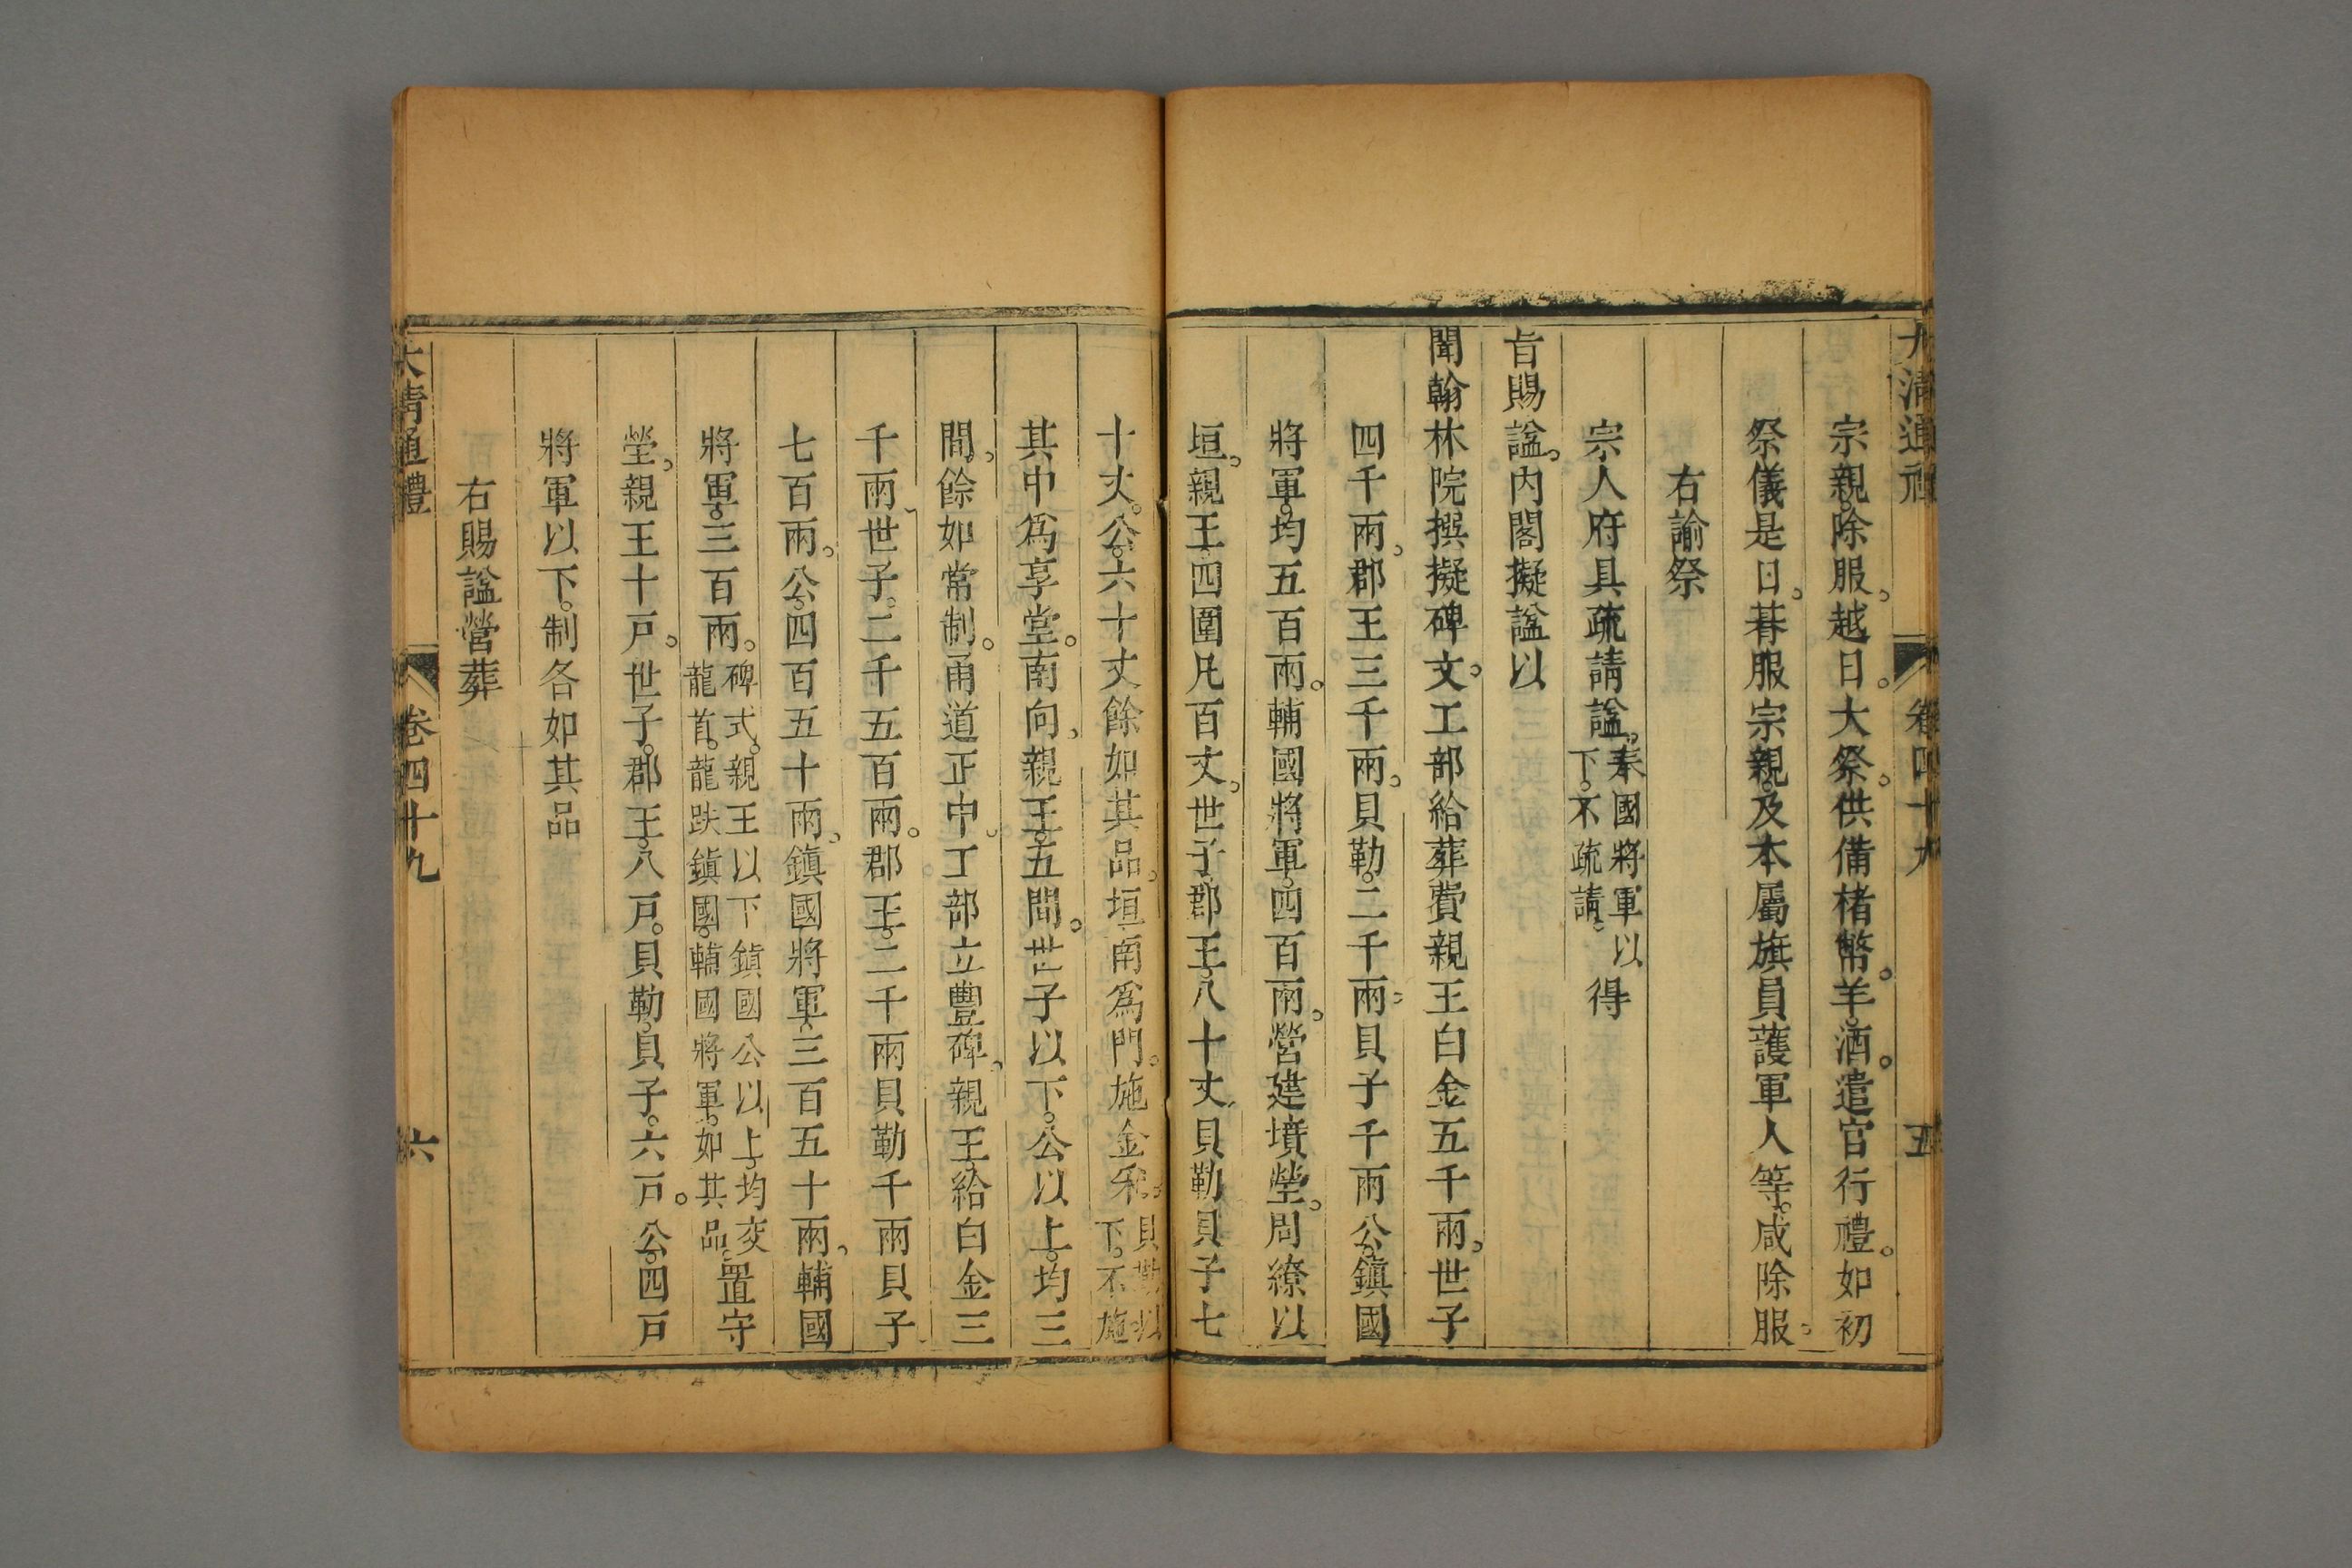 大清通禮 卷四十九 五
宗親。除服。越日。大祭。供備楮幣。羊。酒。遣官行禮。如初
祭儀是日。朞服宗親。及本屬旗員護軍人等。咸除服。
右諭祭
宗人府具疏請諡。奉國將軍以下。不疏請。得
旨賜諡。內閣擬諡以
聞翰林院撰擬碑文。工部給葬費親王白金五千兩。世子
四千兩。郡王三千兩。貝勒。二千兩。貝子千兩公。鎮國
將軍。均五百兩。輔國將軍。四百兩。營建墳塋。周繚以
垣。親王四圍凡百丈。世子郡王。八十丈。貝勒貝子七
十丈。公。六十丈餘如其品。垣南爲門。施金釆。貝勒以下。不施。
其中爲享堂。南向。親王。五間。世子以下。公以上。均三
間。餘如常制。甬道正中。工部立豐碑。親王。給白金三
千兩。世子。二千五百兩。郡王。二千兩貝勒千兩貝子
七百兩。公。四百五十兩。鎮國將軍。三百五十兩。輔國
將軍。三百兩。碑式。親王以下鎮國公以上。均交龍首。龍趺鎮國。輔國將軍。如其品。置守
塋。親王十戸。世子。郡王。八戸。貝勒。貝子。六戸。公。四戸
將軍以下。制各如其品
右賜諡營葬
大清通禮 卷四十九 六